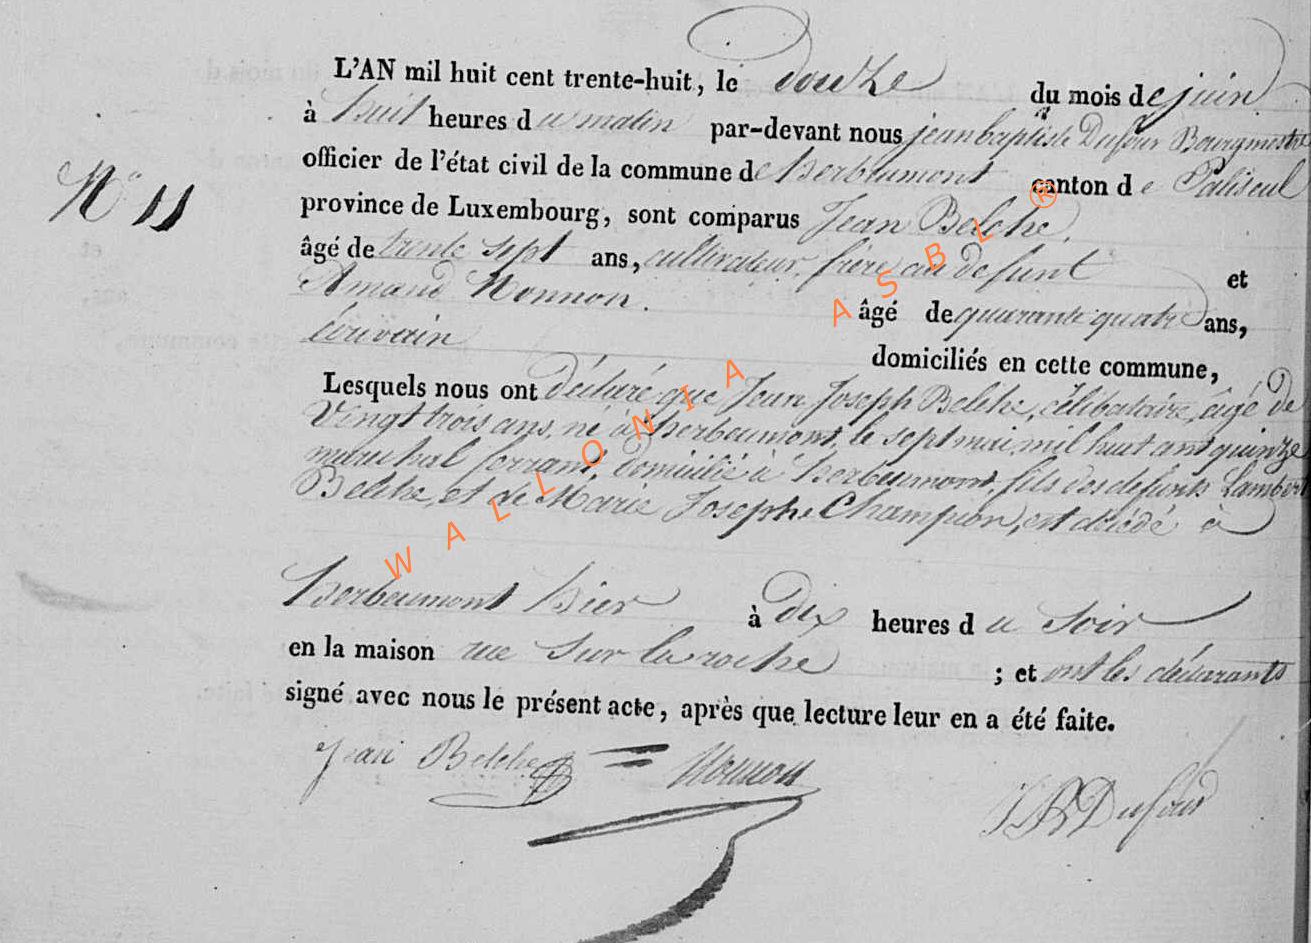 L'AN mil huit cent trente-huit, le douze du mois de juin
à huit heures du matin par-devant nous jean baptiste Dufour Bourgmestre
officier de l'état civil de la commune de herbeumont canton de Paliseul
N° 11
province de Luxembourg, sont comparus Jean Belche,
âgé de trente sept ans, cultivateur, frère au defunt et
Amand Monnon. âgé de quarante quatre ans,
écrivain domiciliés en cette commune,
Lesquels nous ont déclaré que Jean Joseph Belche, célibataire, âgé de
Vingt trois ans, né à herbeumont, le sept mai mil huit cent quinze
maréchal ferrant, domicilié à herbeumont, fils des defunts Lambert
Belche, et de Marie Josephe Champion, est décédé à
herbeumont hier à dix heures du soir
en la maison rue sur la roche ; et ont les déclarants
signé avec nous le présent acte, après que lecture leur en a été faite.
Jean Belche Monnon
JB Dufour
WALLONIA ASBL ®